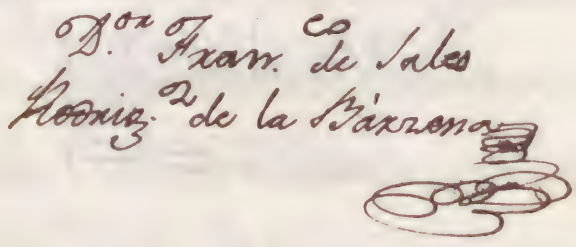 D.ᵒⁿ Franᶜᵒ de Sales
Rodrig.ᶻ de la Bárzena